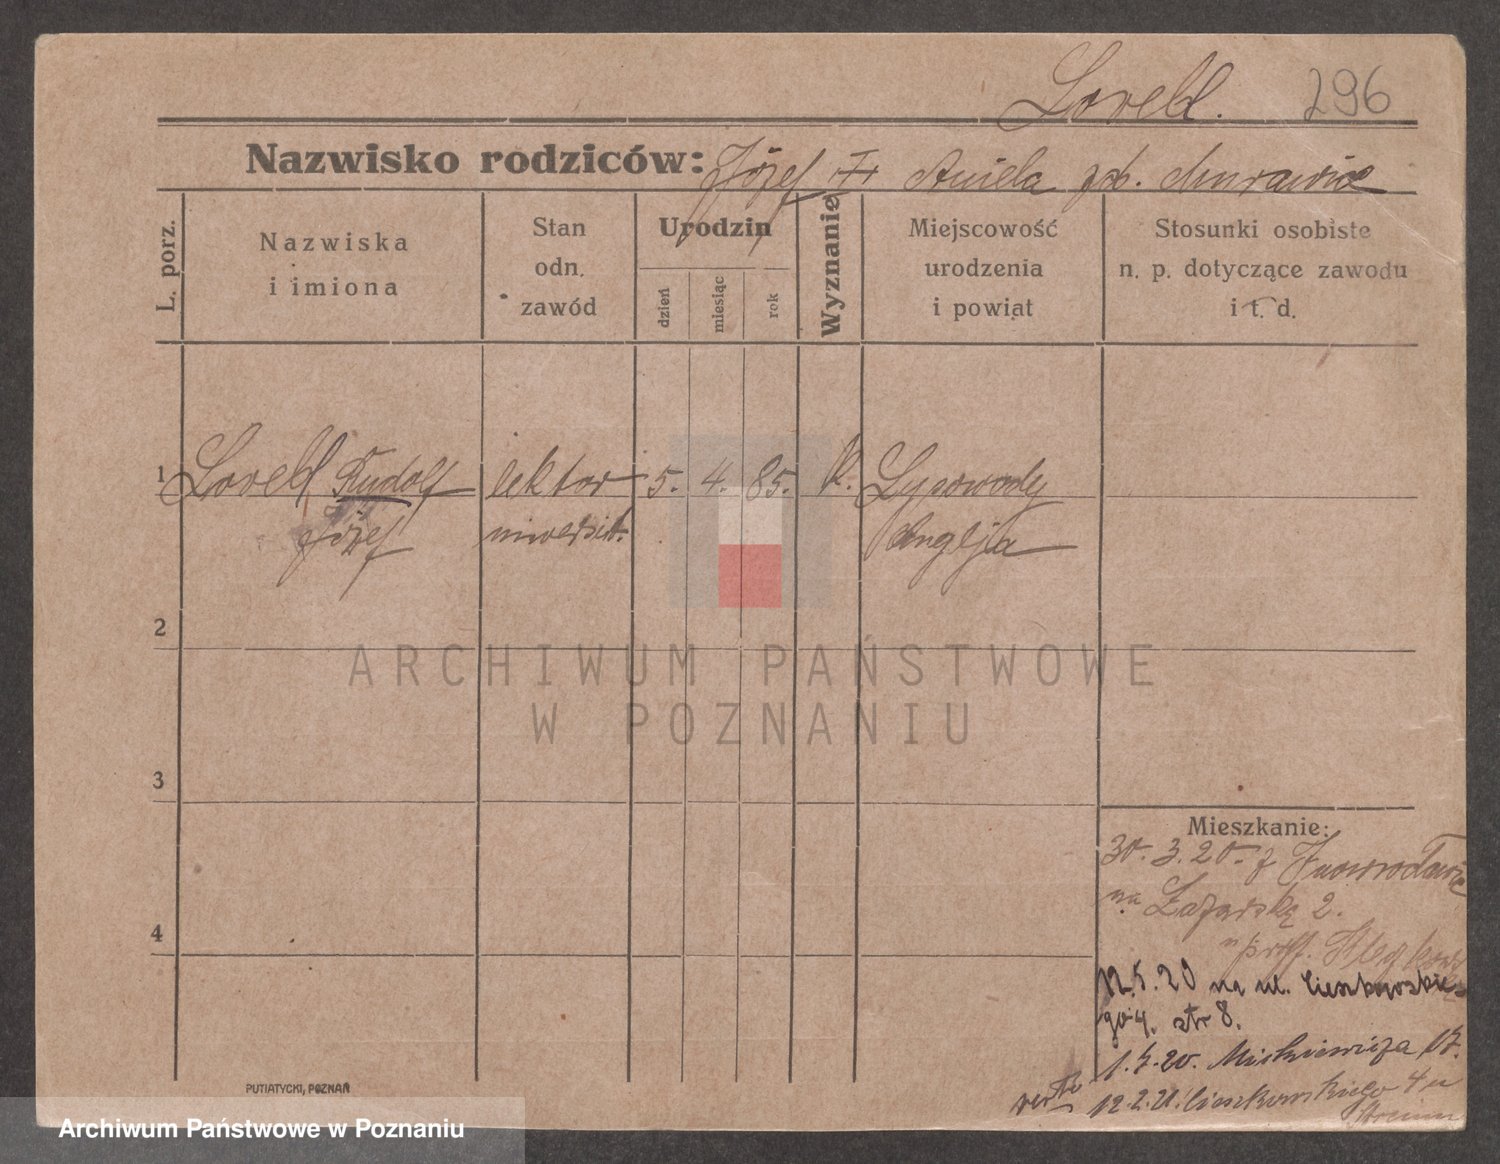 Lovell. 296
Nazwisko rodziców: Józef i Aniela
L. porz.
Nazwiska
i imiona
Stan
odn.
zawód
Urodzin
dzień
miesiąc
rok
Wyznanie
Miejscowość
urodzenia
i powiat
Stosunki osobiste
n. p. dotyczące zawodu
i t. d.
1 Lovell Rudolf lektor 5. 4. 85. k. Lysowody
Józef uniwersit. Anglja
2
ARCHIWUM PAŃSTWOWE
W POZNANIU
3
Mieszkanie:
30. 3. 20. z
na Łazarską 2.
4
u prof.
12.5.20 na ul. Cieszkowskie-
go 4. str 8.
1.7.20. 17.
verte 12.2.21. Cieszkowskiego 4 u
PUTIATYCKI, POZNAŃ
Archiwum Państwowe w Poznaniu